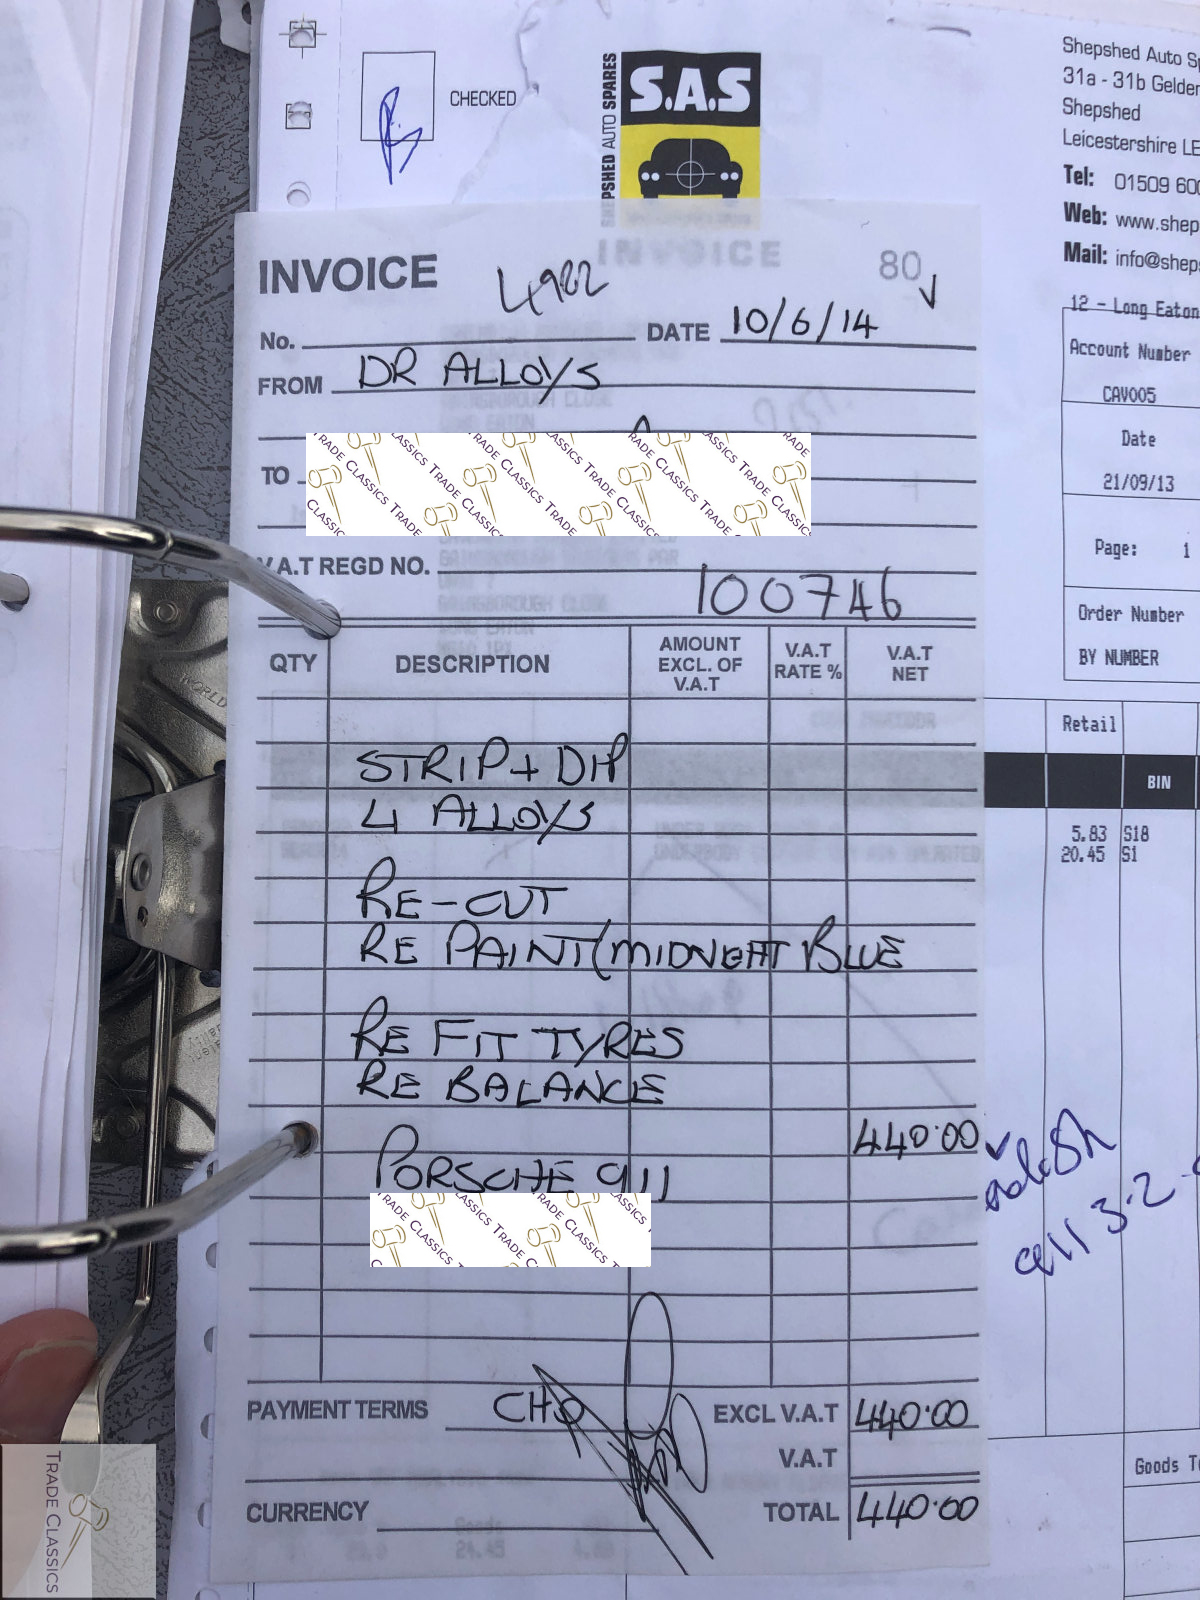 CHECKED
SHEPSHED AUTO SPARES
S.A.S
Shepshed Auto Sp
31a - 31b Gelder
Shepshed
Leicestershire LE
Tel: 01509 600
Web: www.shep
Mail: info@sheps
12 - Long Eaton
Account Number
CAV005
Date
21/09/13
Page: 1
Order Number
BY NUMBER
Retail
BIN
5.83 S18
20.45 S1
Goods To
INVOICE
80
No. 4922 DATE 10/6/14
FROM DR ALLOYS
TO
V.A.T REGD NO. 100746
QTY DESCRIPTION AMOUNT EXCL. OF V.A.T V.A.T RATE % V.A.T NET
STRIP + DIP
4 ALLOYS
RE-CUT
RE PAINT (MIDNGHT BLUE
RE FIT TYRES
RE BALANCE
440.00
PORSCHE 911
PAYMENT TERMS CHQ EXCL V.A.T 440.00
V.A.T
CURRENCY TOTAL 440.00
INVOICE
TRADE CLASSICS